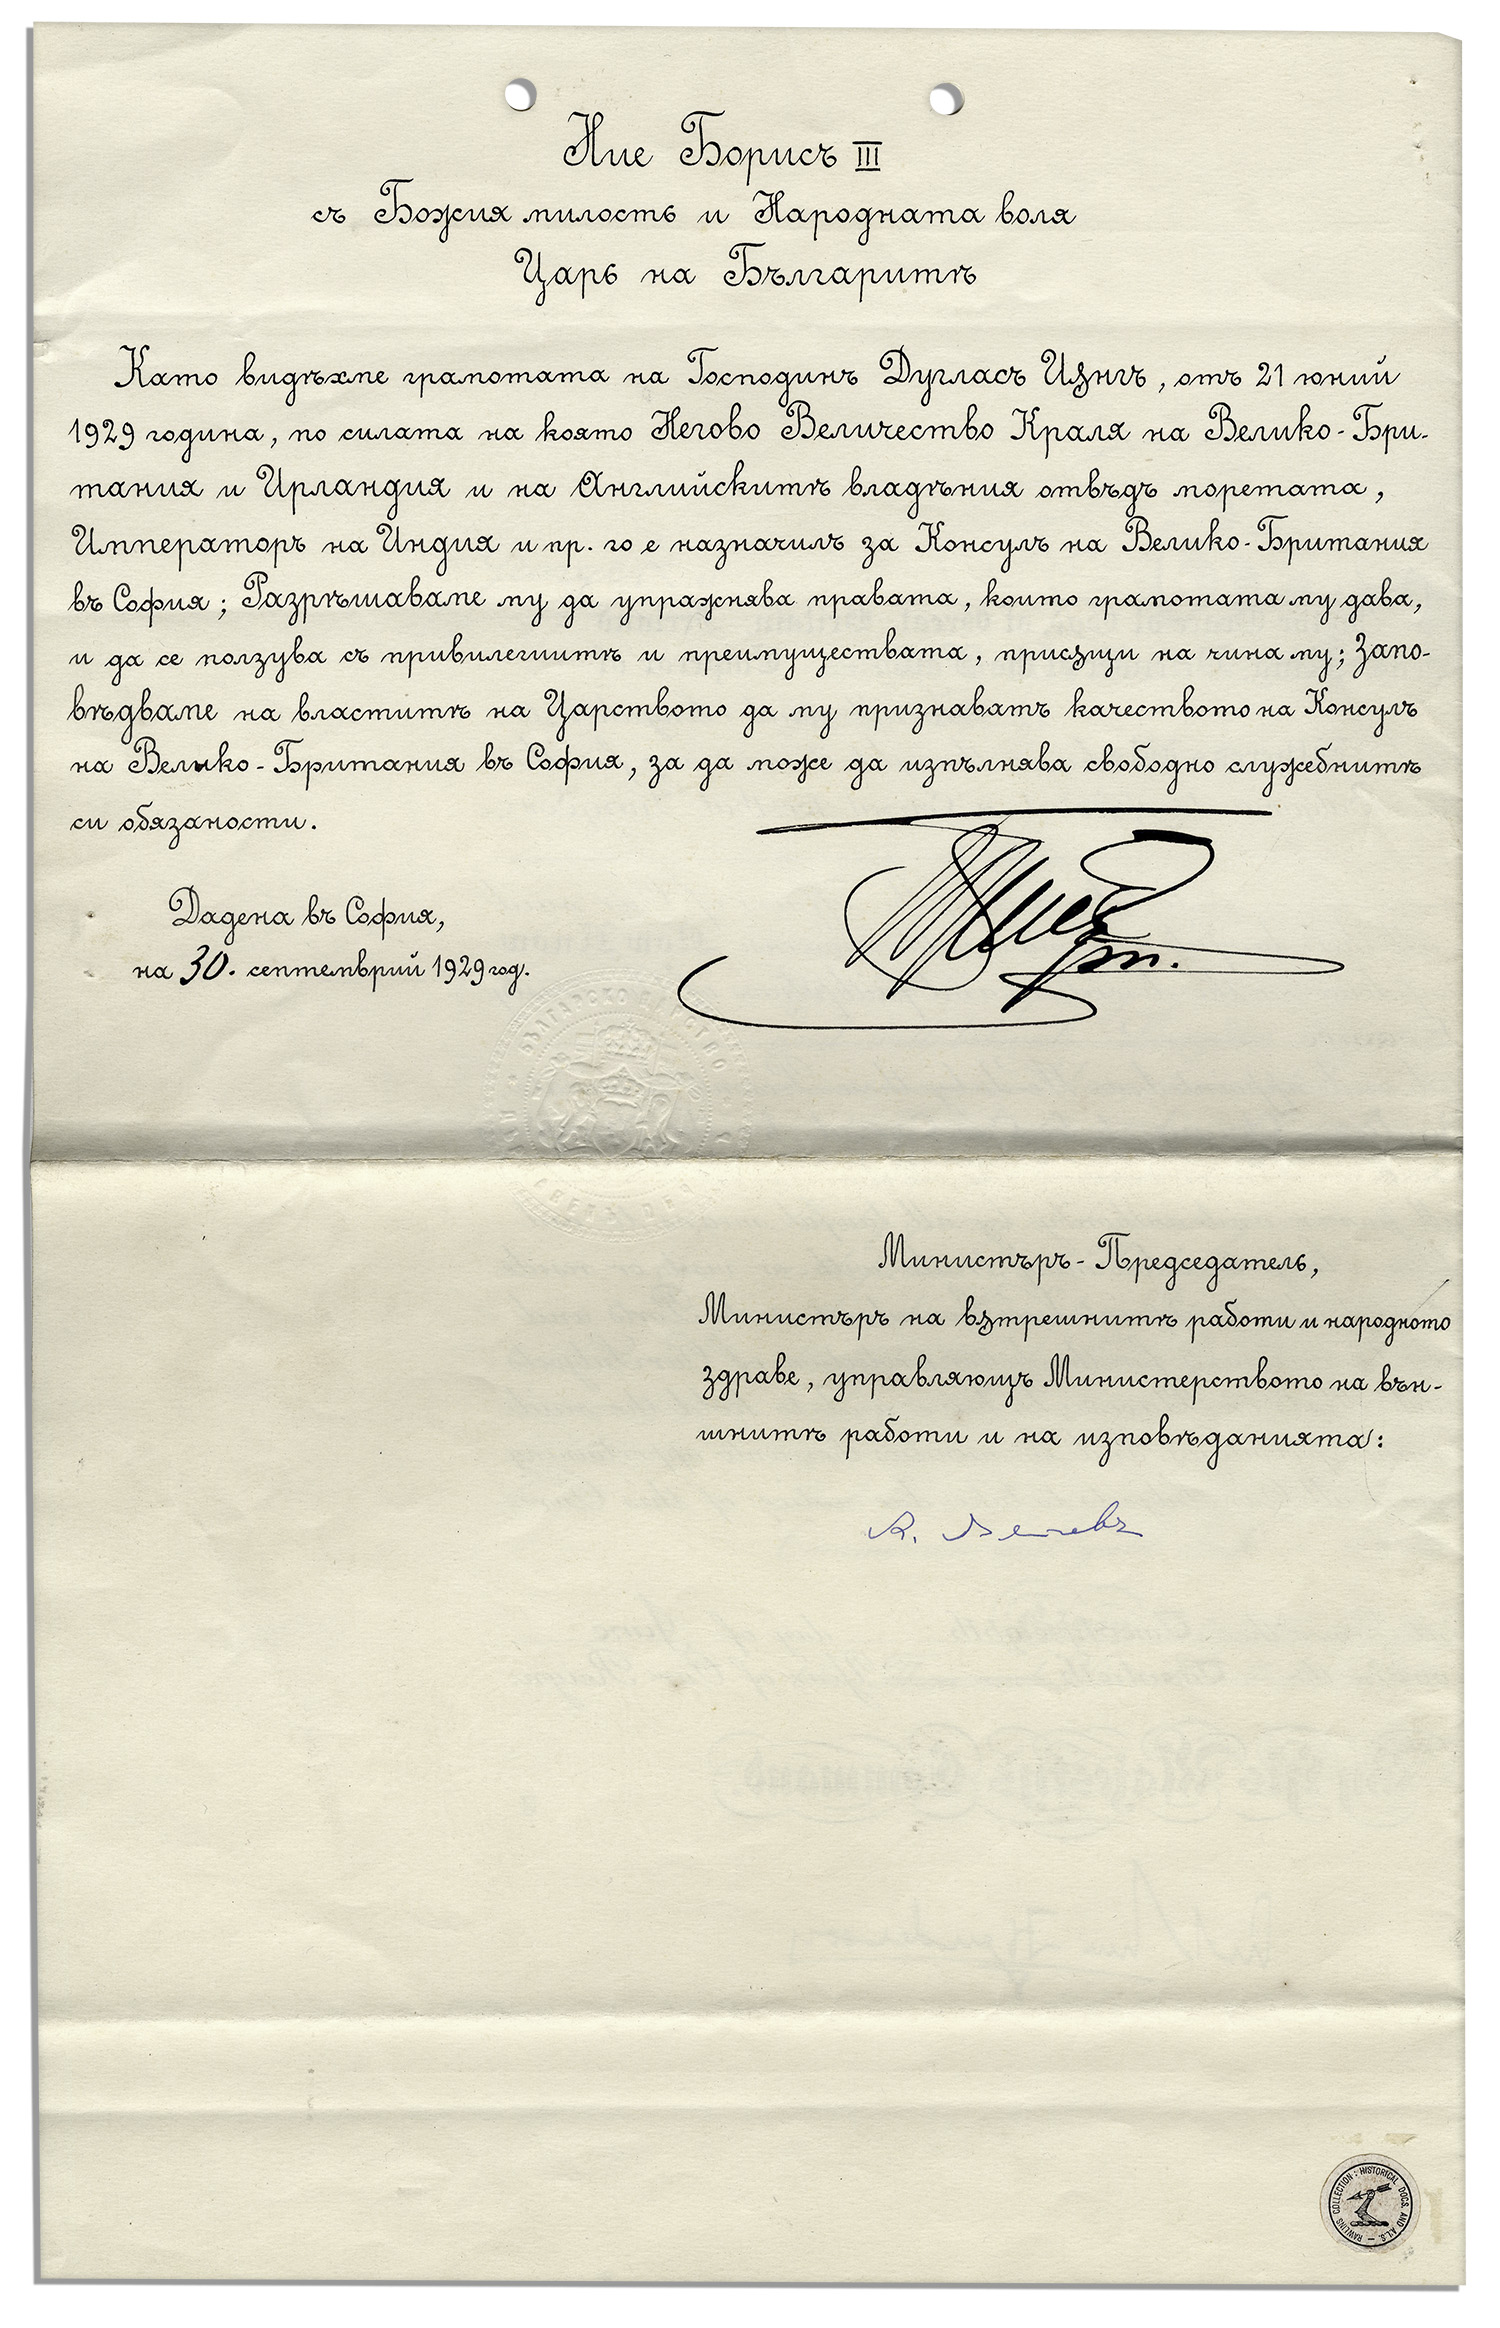 Ние Борисъ III
съ Божия милость и Народната воля
Царь на Българитѣ
Като видѣхме грамотата на Господинъ Дугласъ Иѫнгъ, отъ 21 юний
1929 година, по силата на която Негово Величество Краля на Велико-Бри-
тания и Ирландия и на Английскитѣ владѣния отвъдъ моретата,
Императоръ на Индия и пр. го е назначилъ за Консулъ на Велико-Британия
въ София; Разрѣшаваме му да упражнява правата, които грамотата му дава,
и да се ползува съ привилегиитѣ и преимуществата, присѫщи на чина му; Запо-
вѣдваме на властитѣ на Царството да му признаватъ качеството на Консулъ
на Велико-Британия въ София, за да може да изпълнява свободно служебнитѣ
си обязаности.
Дадена въ София,
на 30. септемврий 1929 год.
Министъръ-Председатель,
Министъръ на вѫтрешнитѣ работи и народното
здраве, управляющъ Министерството на вън-
шнитѣ работи и на изповѣданията:
RAWLINS COLLECTION : HISTORICAL DOCS. AND A.L.S.